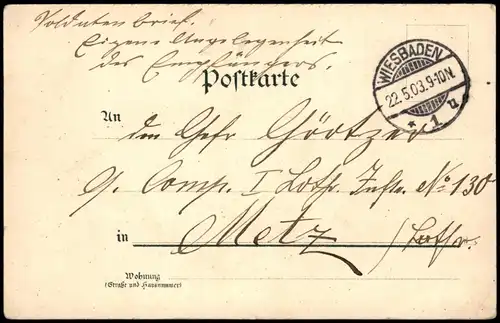 Soldatenbrief.
Eigene Angelegenheit
des Empfängers.
Postkarte
WIESBADEN
22.5.03.9-10N.
* 1 u
An den Gefr Görtzer
9. Comp. I Lothr. Inftr. No 130
in Metz / Lothr.
Wohnung
(Straße und Hausnummer)